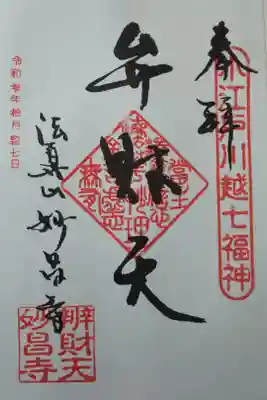 奉拝
小江戸川越七福神
弁財天
法眞山妙昌寺
辨財天
妙昌寺
令和 年 拾月 七日